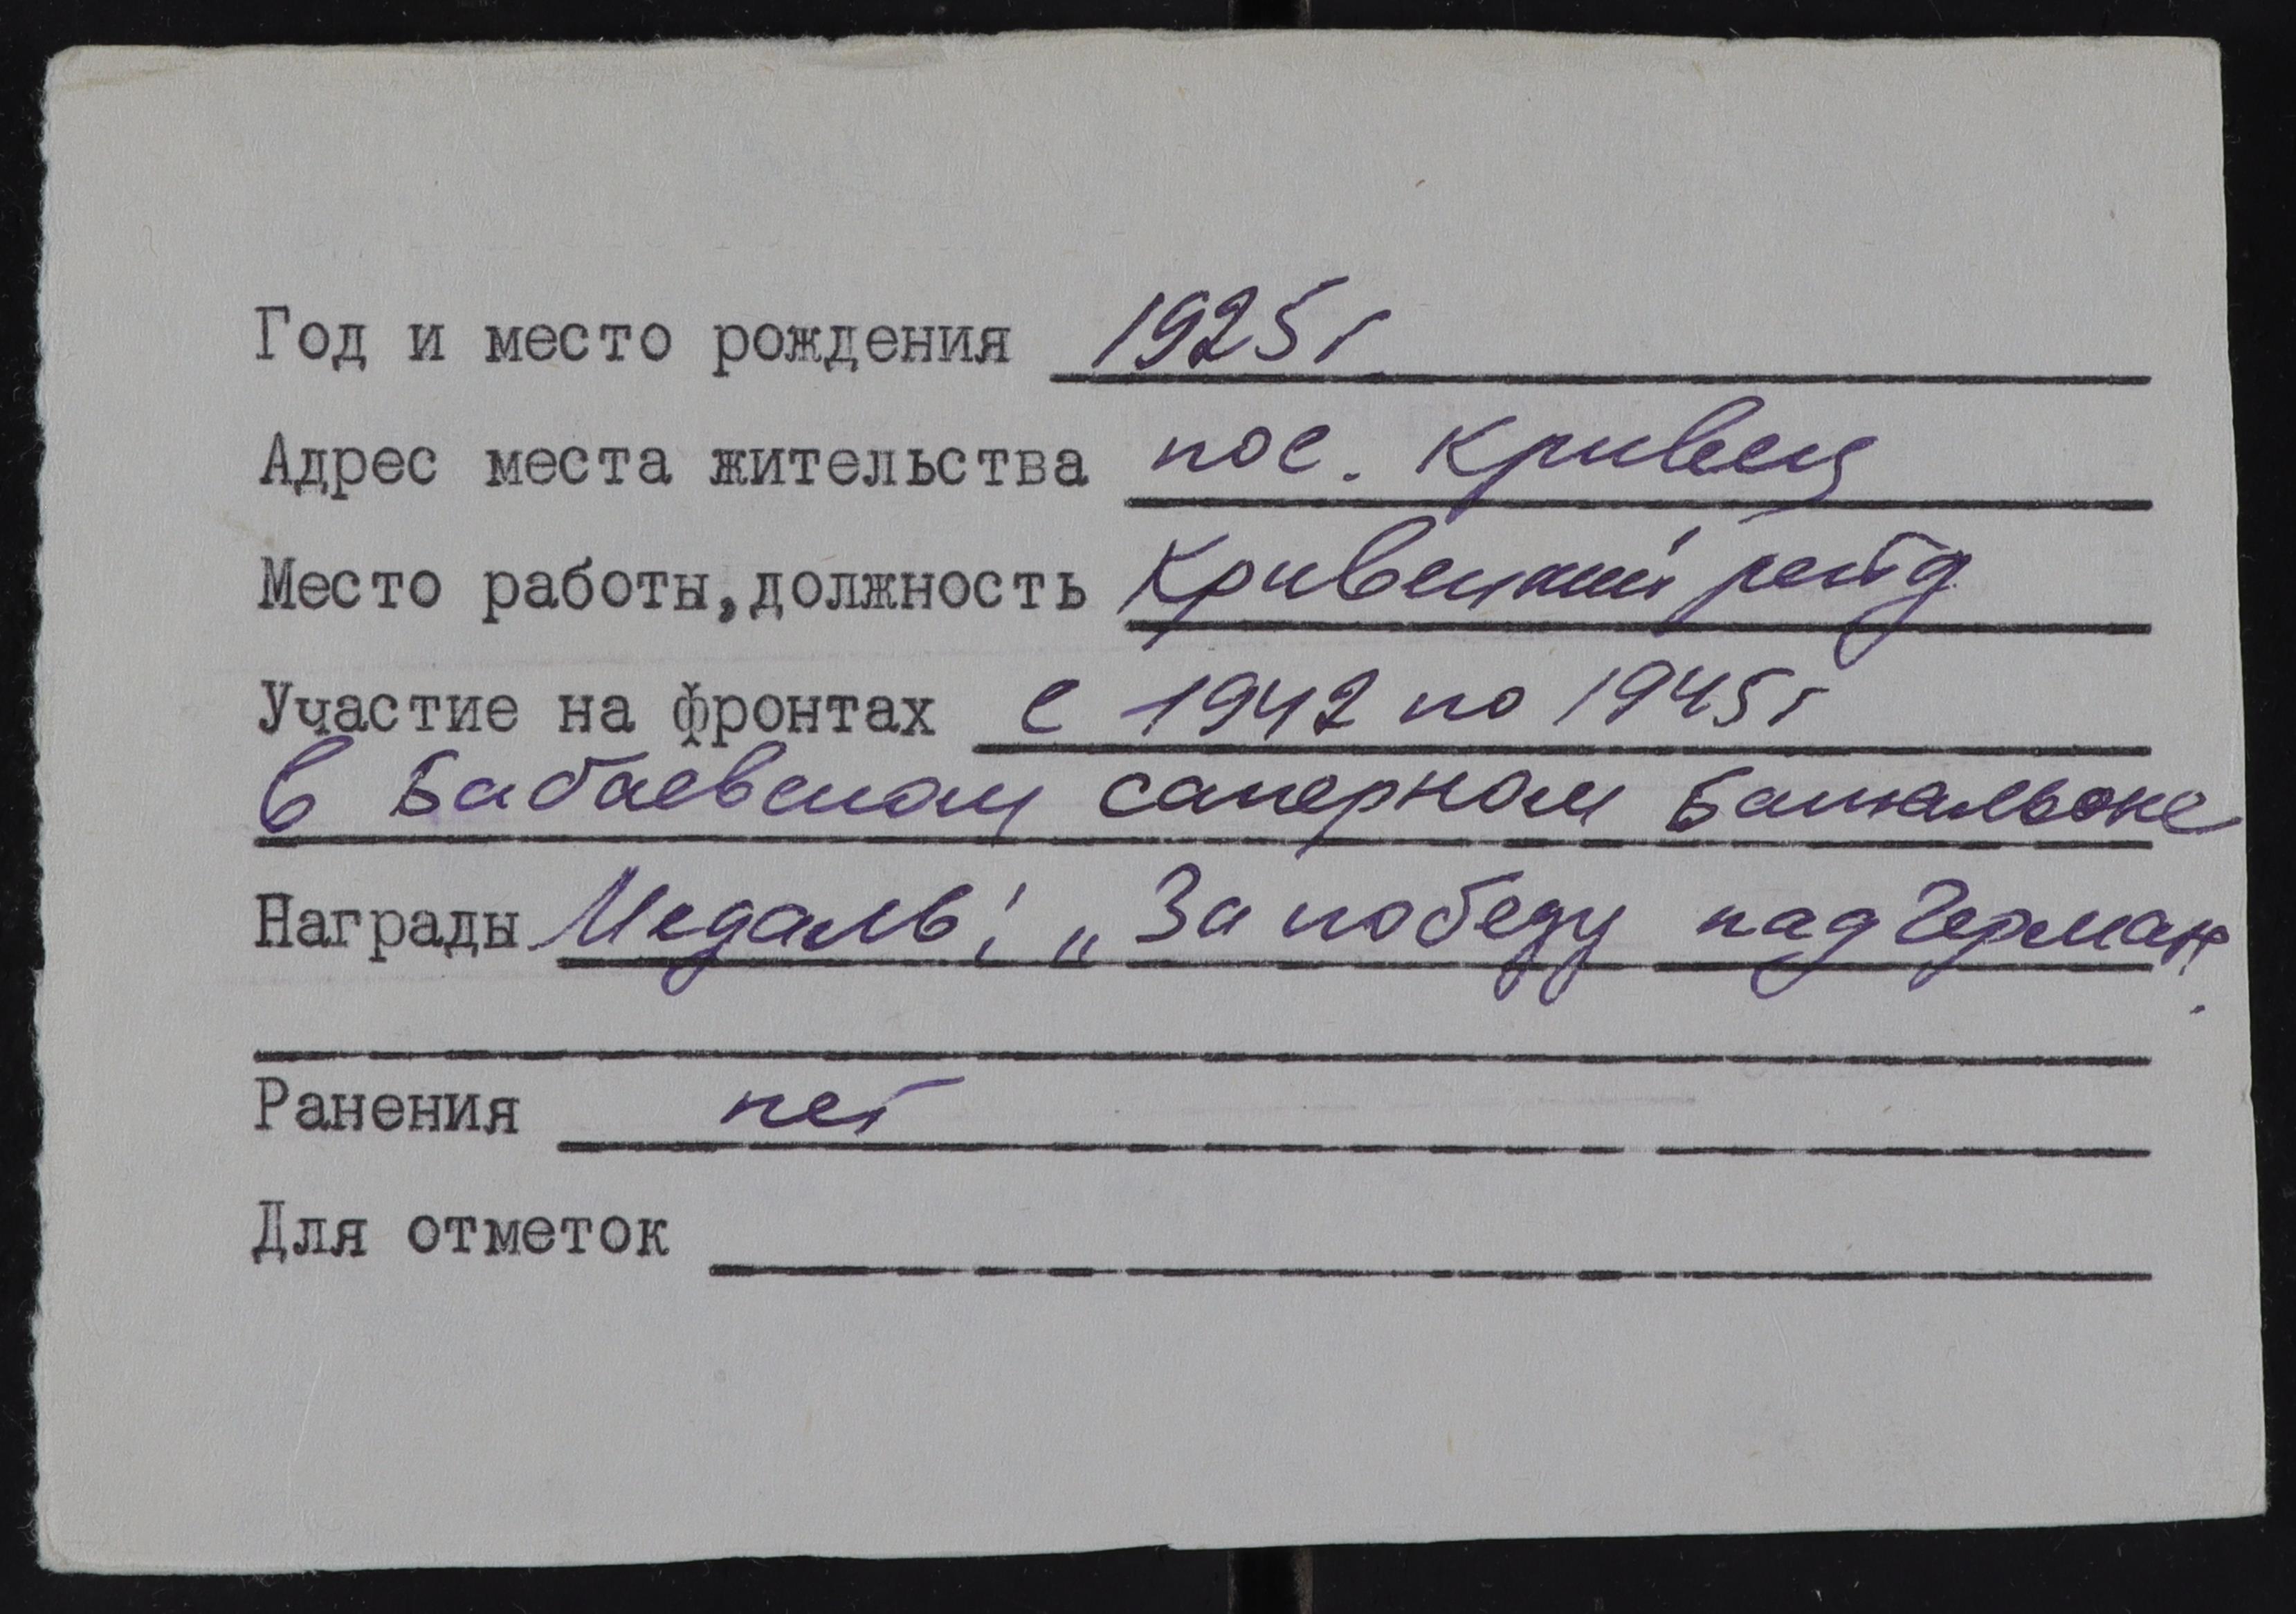 Год и место рождения 1925 г
Адрес места жительства пос. Кривец
Место работы, должность Кривецкий рейд
Участие на фронтах с 1942 по 1945 г
в Бабаевском саперном батальоне
Награды Медаль: „За победу над Герман.
Ранения нет
Для отметок